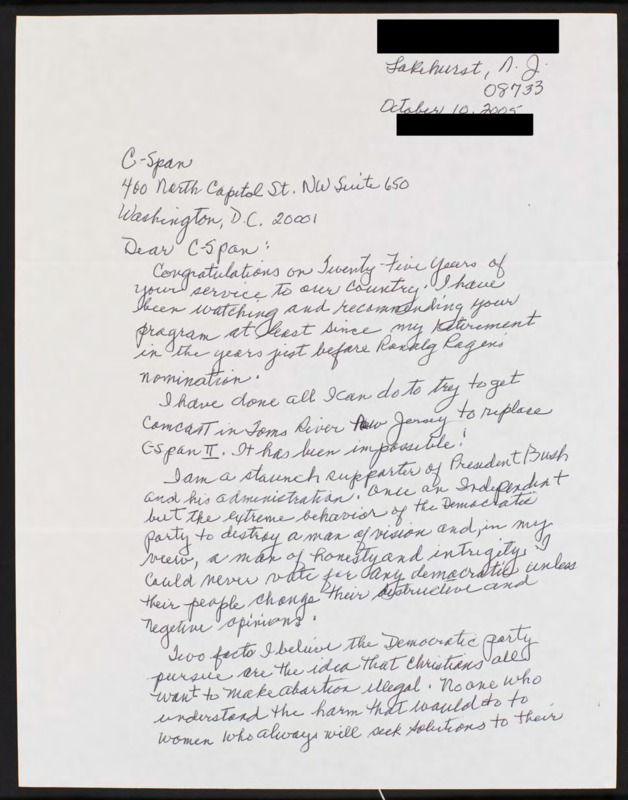 Lakehurst, N.J.
08733
October 10, 2005
C-Span
400 North Capitol St. NW Suite 650
Washington, D.C. 20001
Dear C-Span:
Congratulations on Twenty-Five Years of
your service to our country. I have
been watching and recommending your
program at least since my retirement
in the years just before Ronald Ragens
nomination.
I have done all I can do to try to get
Comcast in Toms River New Jersey to replace
CSpan II. It has been impossible!
I am a staunch supporter of President Bush
and his administration. Once an Independent
but the extreme behavior of the Democratic
party to destroy a man of vision and, in my
view, a man of honesty and intrigity, I
could never vote for any democratic unless
their people change their destructive and
negetive opinions.
Two facts I believe the Democratic party
pursue are the idea that Christians all
want to make abortion illegal. No one who
understand the harm that would do to
women who always will seek solutions to their